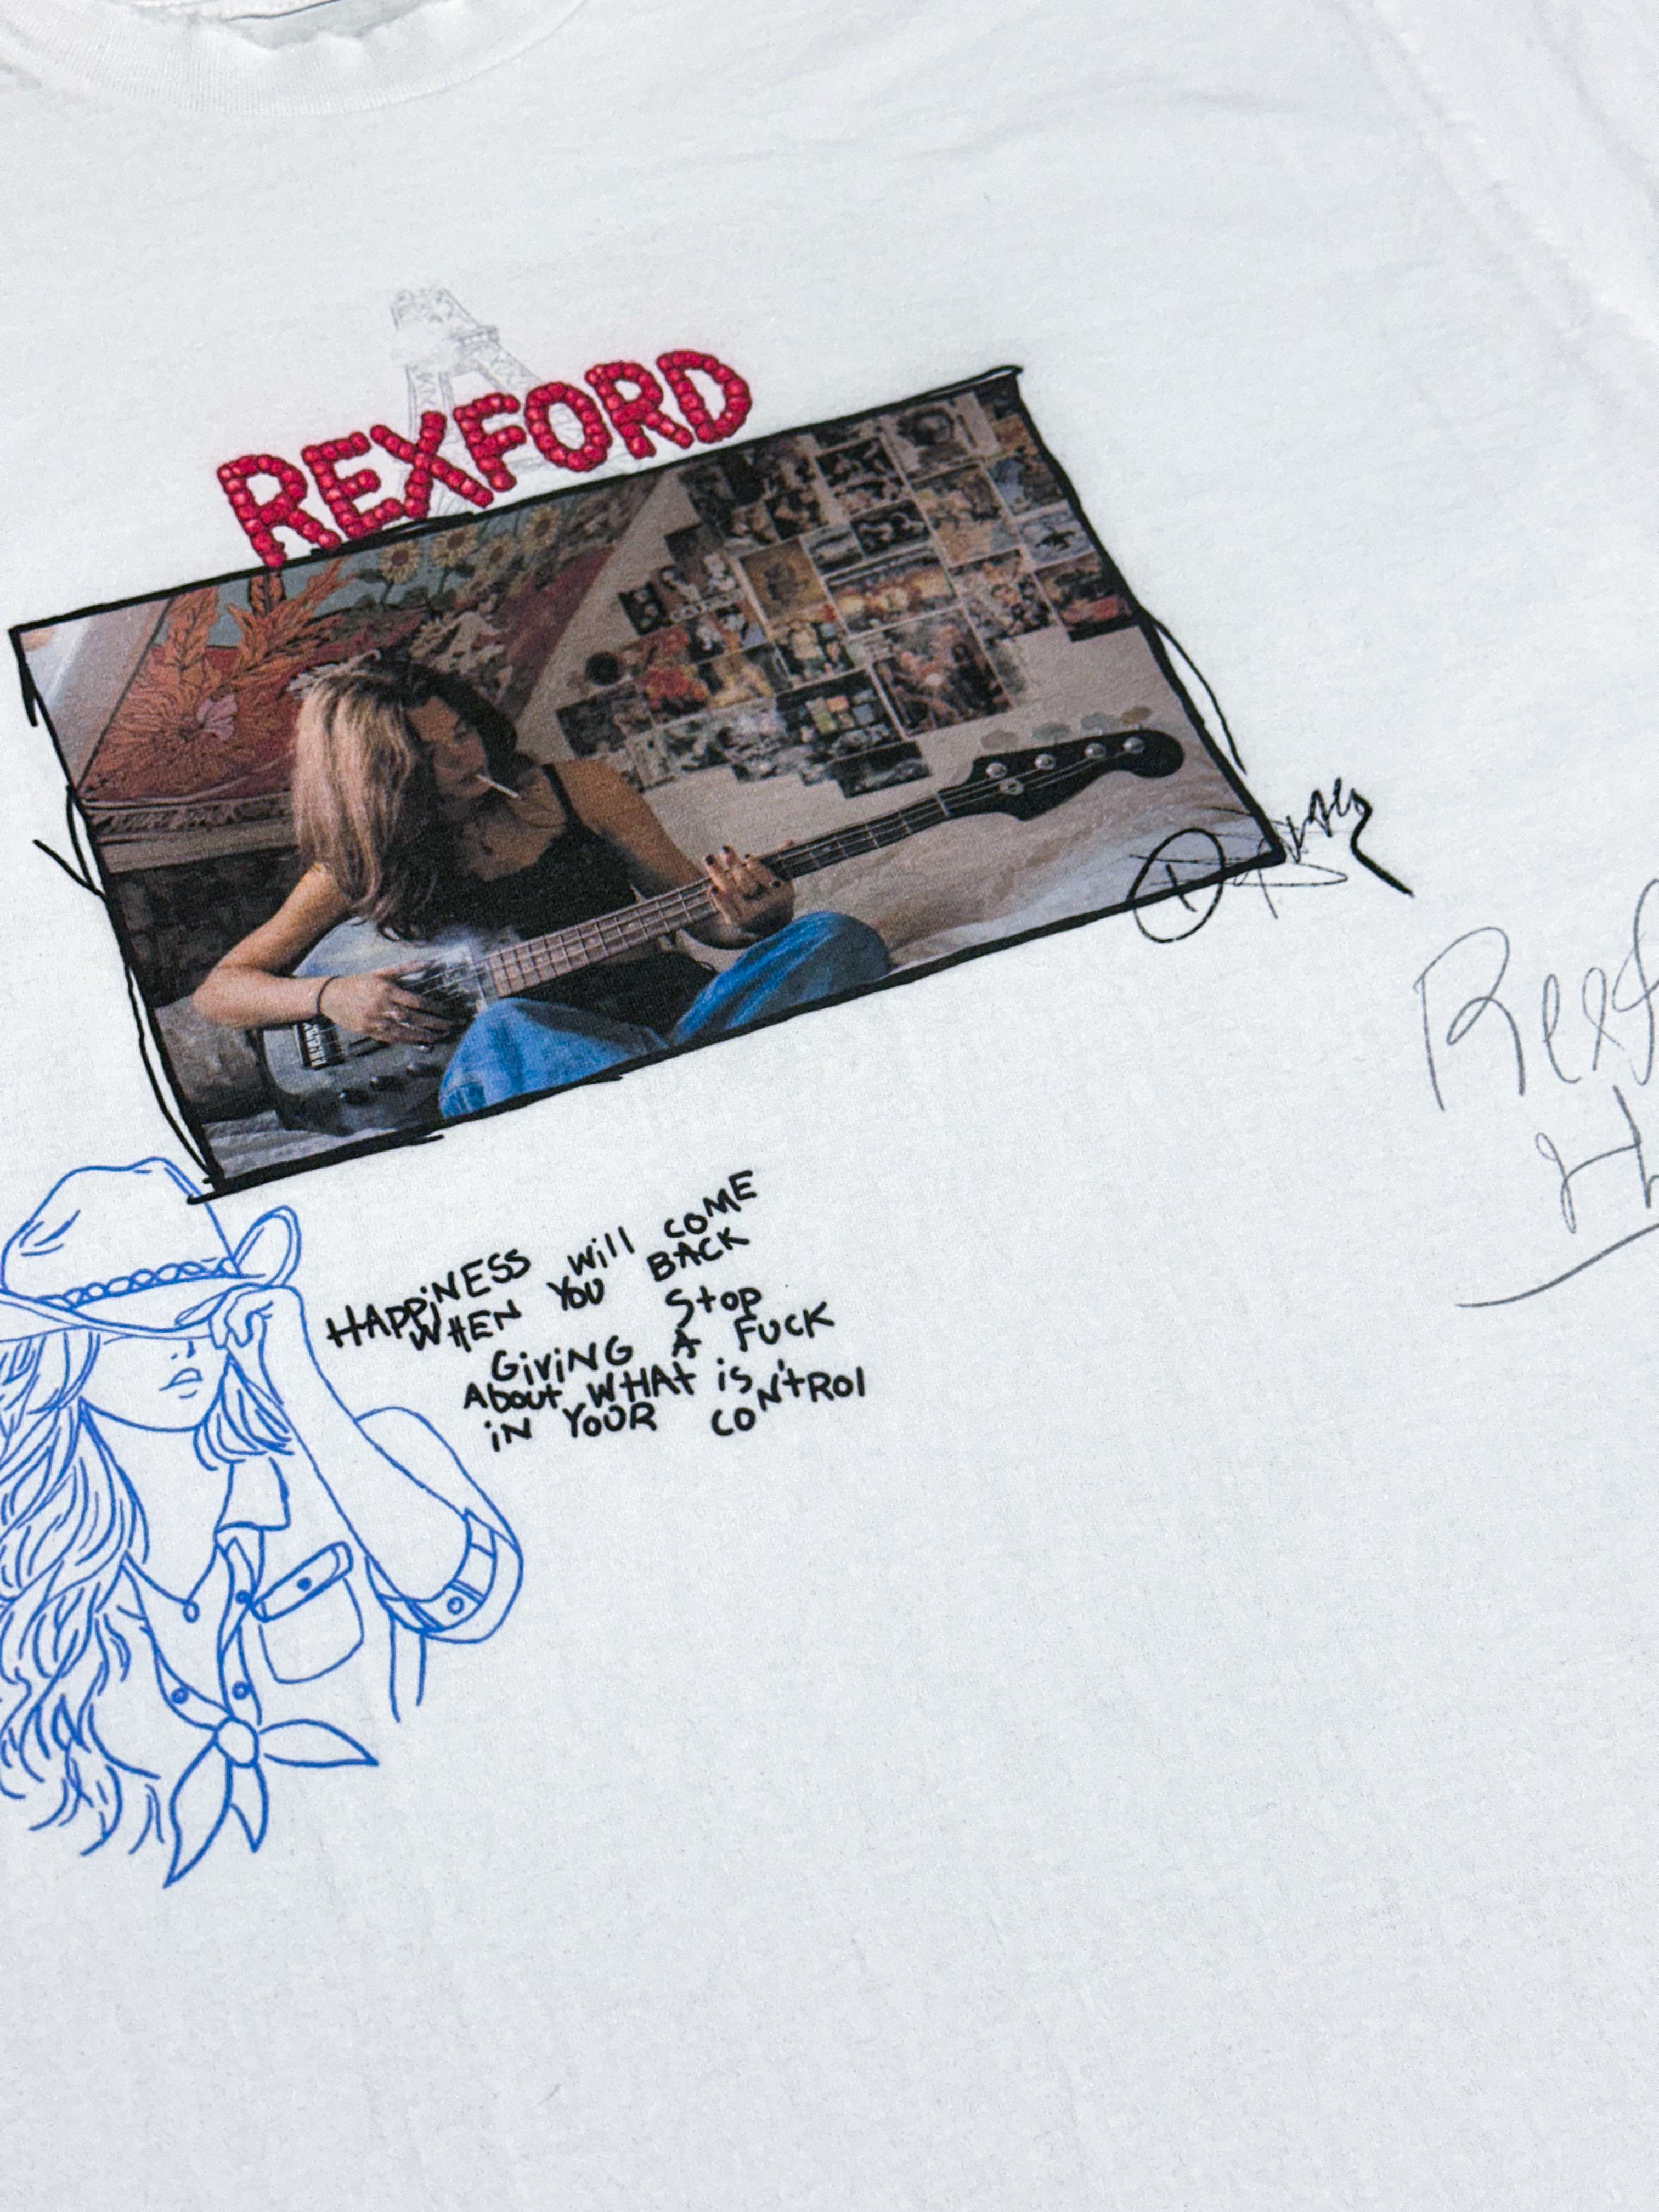 REXFORD
HAPPiNESS will COME
WHEN YOU BACK
Stop
GiViNG A FUCK
About WHAt iS
iN YOUR CON'tROl